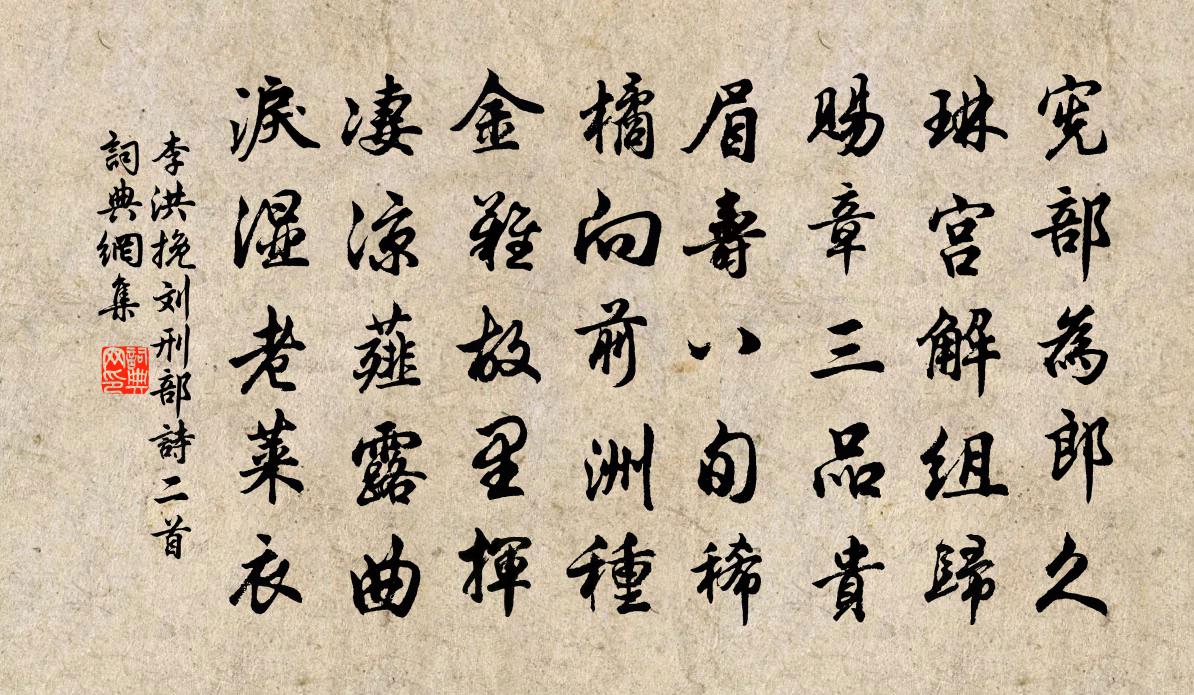 宪部為郎久
琳宫解组歸
賜章三品貴
眉壽八旬稀
橘向前洲種
金難故里揮
凄凉薤露曲
淚濕老莱衣
李洪挽刘刑部詩二首
詞典網集
詞典网印